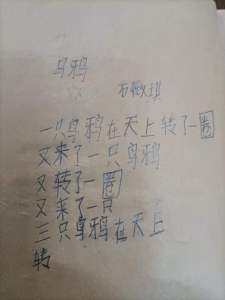 乌鸦
一只乌鸦在天上转了一圈
又来了一只乌鸦
又转了一圈
又来了一只
三只乌鸦在天上
转